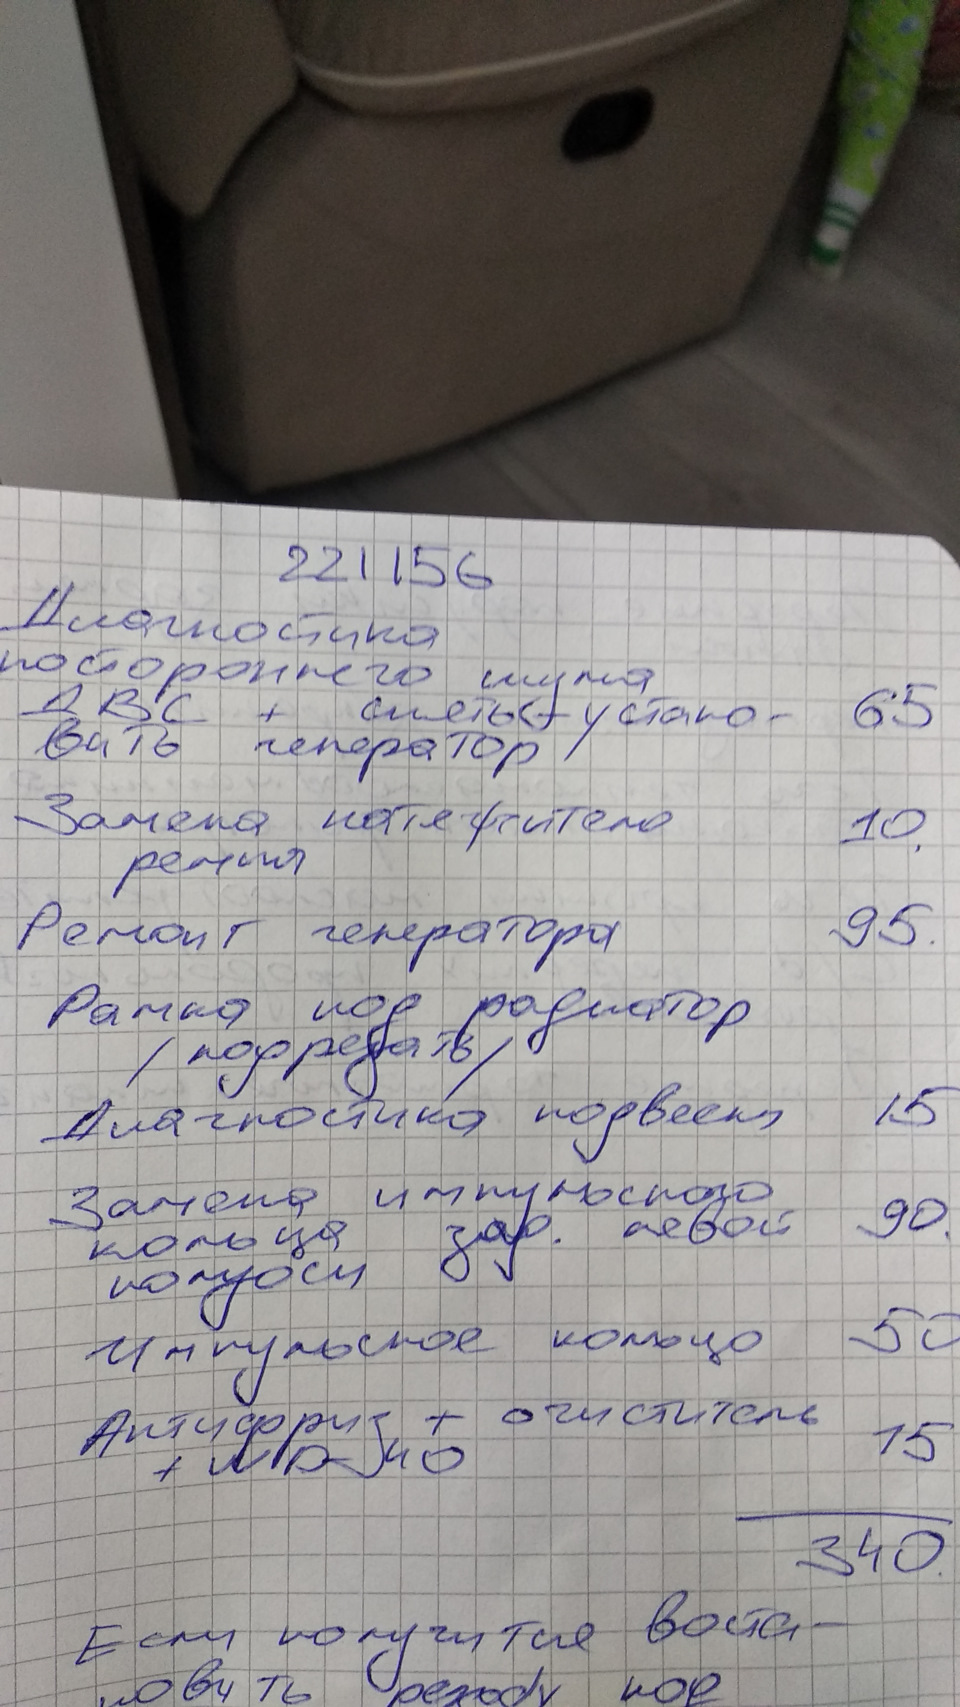 221156
Диагностика
постороннего шума
ДВС + снять + устано- 65
вить генератор
Замена натяжителя 10.
ремня
Ремонт генератора 95.
Рамка под радиатор
/подрезать/
Диагностика подвески 15
Замена импульсного
кольца зад. левой 90.
полуоси
Импульсное кольцо 50
Антифриз + очиститель
+ WD-40 15
340.
Если получится вста-
новить под